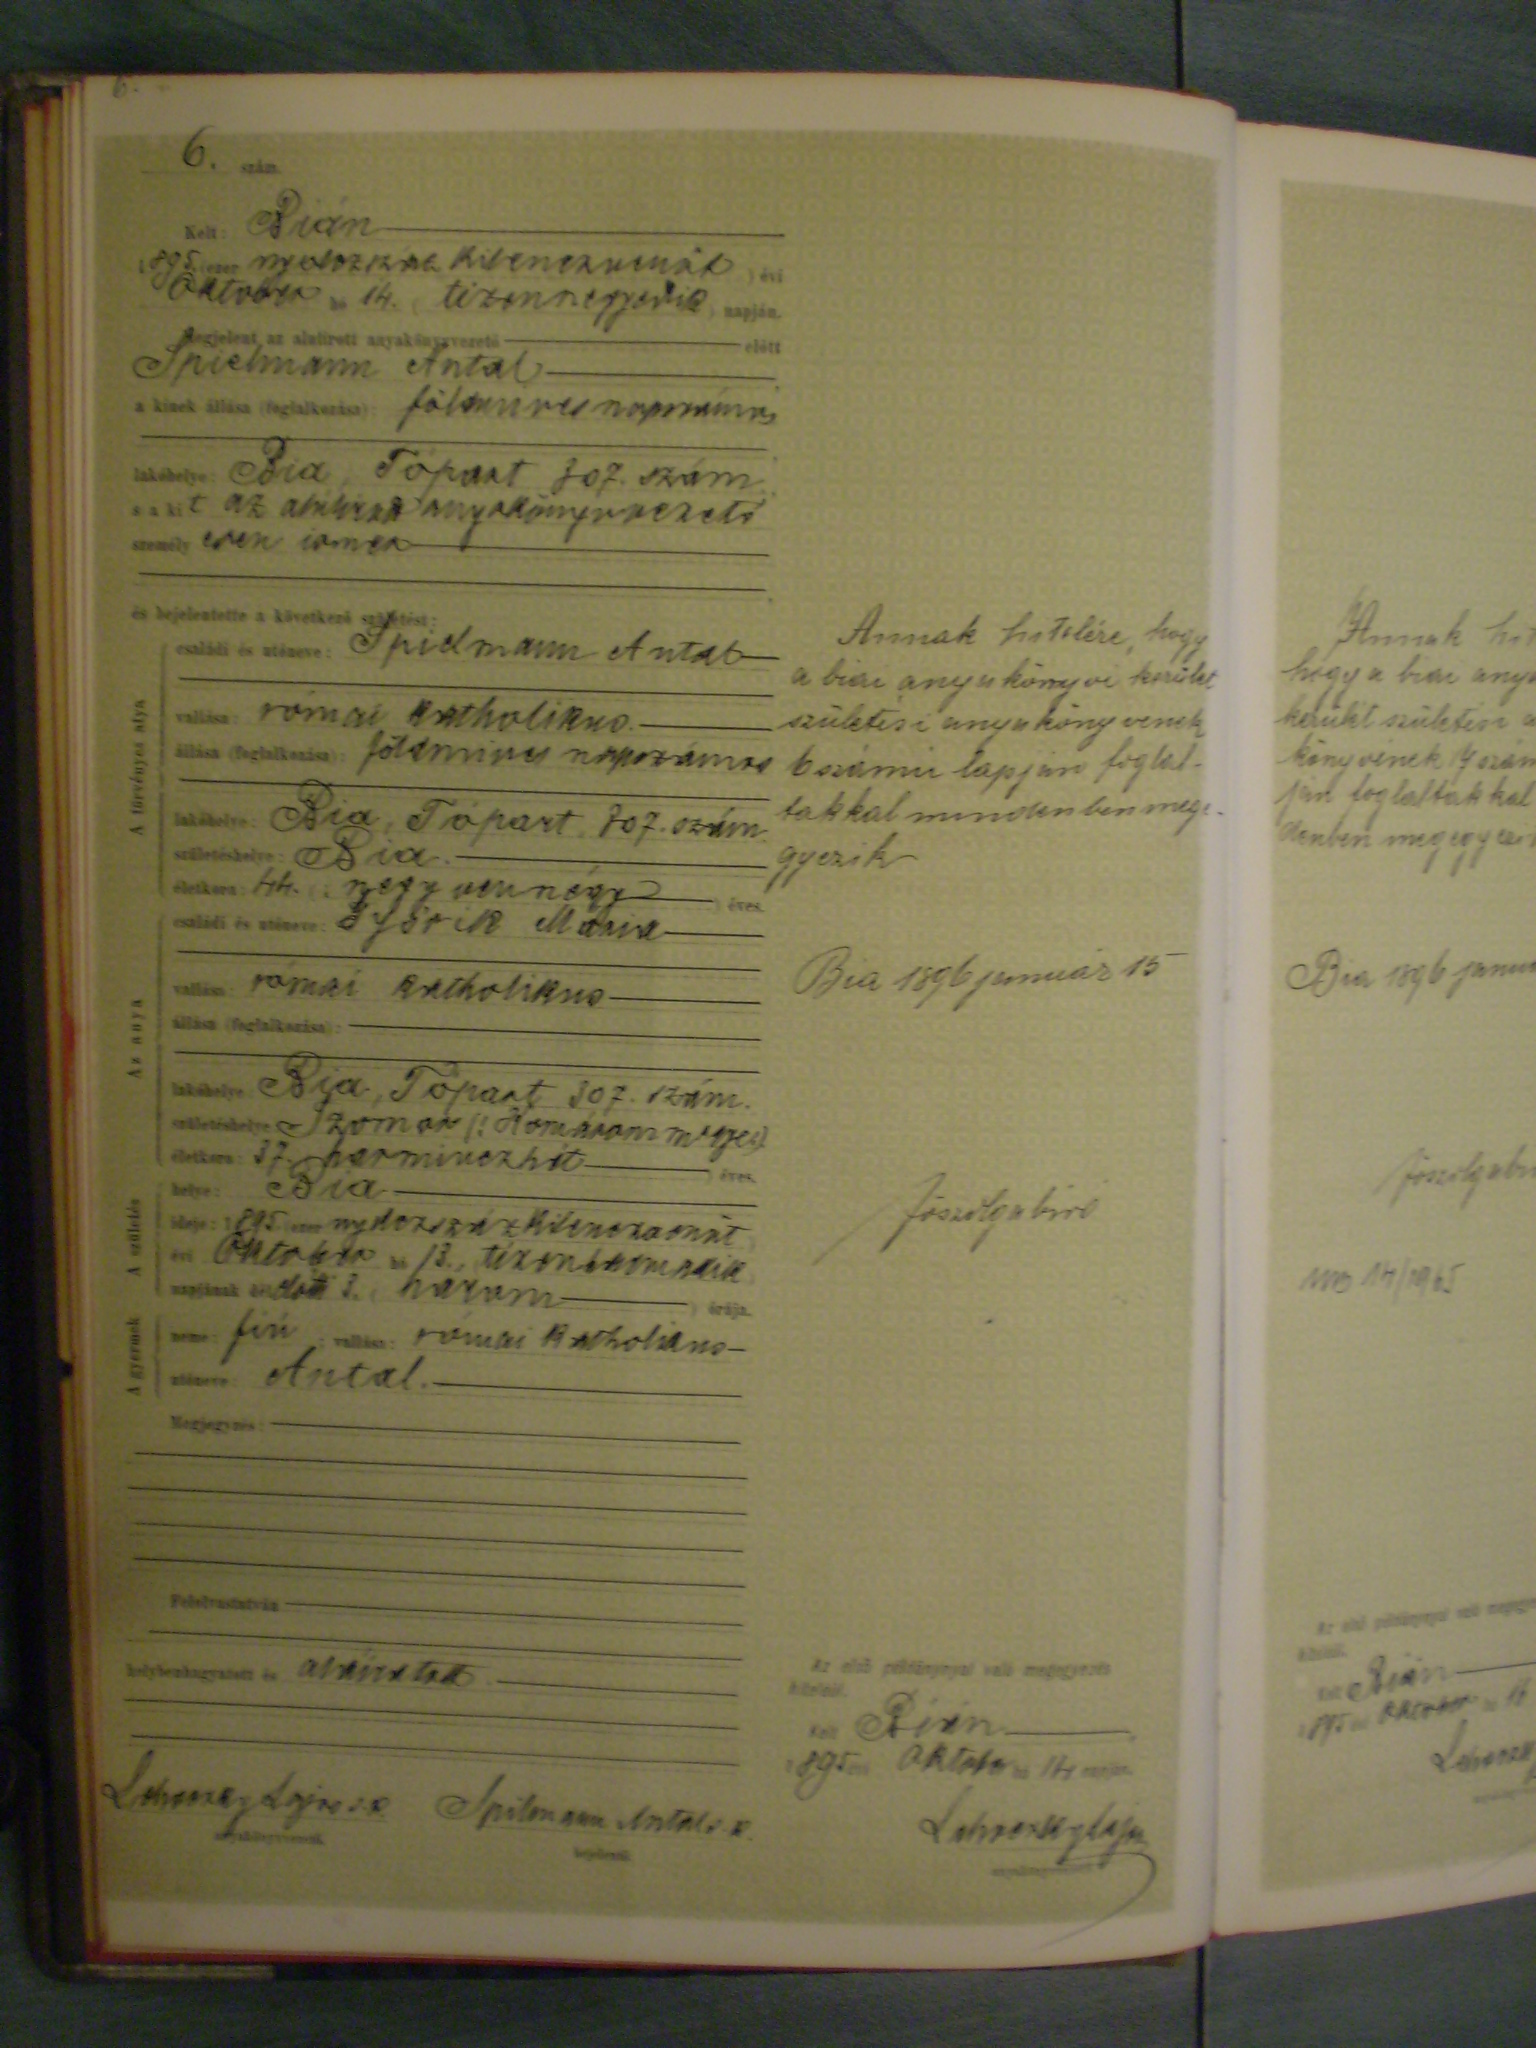 6.
6. szám.
Kelt: Bián
1895 (ezer nyolczszáz kilenczvenöt) évi
Október hó 14. (tizennegyedik) napján.
Megjelent az alulirott anyakönyvvezető előtt
Spielmann Antal
a kinek állása (foglalkozása): földmíves napszámos
lakóhelye: Bia, Tópart 307. szám.
s a kit az alulirott anyakönyvvezető
személyesen ismer
és bejelentette a következő születést:
A törvényes atya
családi és utóneve: Spielmann Antal
vallása: római katholikus.
állása (foglalkozása): földmíves napszámos
lakóhelye: Bia, Tópart 307. szám.
születéshelye: Bia.
életkora: 44. (negyvennégy) éves.
Az anya
családi és utóneve: Győrik Mária
vallása: római katholikus
állása (foglalkozása):
lakóhelye: Bia, Tópart 307. szám.
születéshelye: Szomor (: Komárom megye :)
életkora: 37. harminczhét) éves.
A születés
helye: Bia
ideje: 1895 (ezer nyolczszázkilenczvenöt)
évi Október hó 13. (tizenharmadik)
napjának délelőtt 3. (három) órája.
A gyermek
neme: fiú; vallása: római katholikus
utóneve: Antal.
Megjegyzés:
Felolvastatván
helybenhagyatott és aláíratott
Lehoczky Lajos s.k.
anyakönyvvezető.
Spilmann Antal s.k.
bejelentő.
Annak hitelére, hogy
a biai anyakönyvi kerület
születési anyakönyvének
6 számú lapján foglal-
takkal mindenben mege-
gyezik
Bia 1896 január 15
főszolgabiró
Az első példánynyal való megegyezés
hiteléül.
Kelt Bián
1895 évi Október hó 14 napján.
Lehoczky Lajos
anyakönyvvezető
Annak hit
hogy a biai anya
kerület születési a
könyvének 17 szám
ján foglaltakkal
denben megegyezi
Bia 1896 janu
főszolgabi
14/1965
Az első példánynyal való megegye
hiteléül.
Kelt Bián
1895 évi Október hó 16
Lehoczky